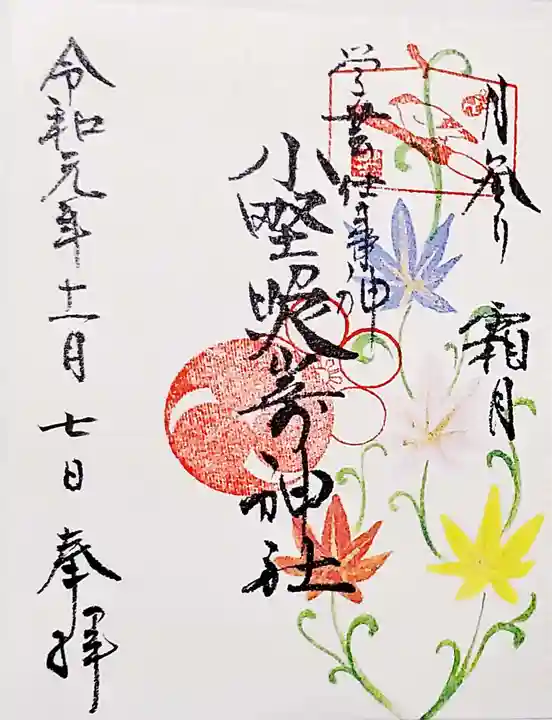 月参り 霜月
学芸仕事神
小野照崎神社
令和元年十一月七日奉拝